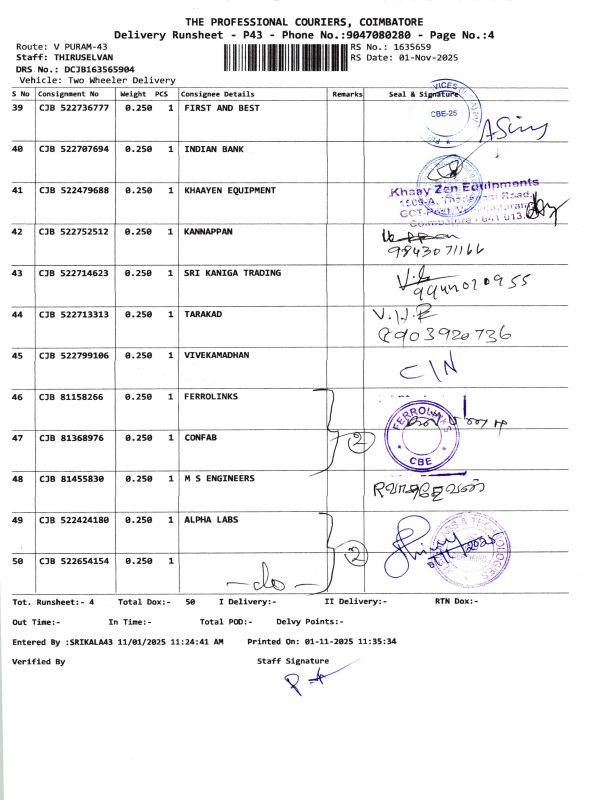 THE PROFESSIONAL COURIERS, COIMBATORE
Delivery Runsheet - P43 - Phone No.:9047080280 - Page No.:4
Route: V PURAM-43 RS No.: 1635659
Staff: THIRUSELVAN RS Date: 01-Nov-2025
DRS No.: DCJB163565904
Vehicle: Two Wheeler Delivery
S No Consignment No Weight PCS Consignee Details Remarks Seal & Signature
39 CJB 522736777 0.250 1 FIRST AND BEST
CBE-25
40 CJB 522707694 0.250 1 INDIAN BANK
41 CJB 522479688 0.250 1 KHAAYEN EQUIPMENT
Khaay Zen Equipments
42 CJB 522752512 0.250 1 KANNAPPAN
9843071166
43 CJB 522714623 0.250 1 SRI KANIGA TRADING
9944020955
44 CJB 522713313 0.250 1 TARAKAD
8903920736
45 CJB 522799106 0.250 1 VIVEKAMADHAN
C/N
46 CJB 81158266 0.250 1 FERROLINKS
FERROLINKS
47 CJB 81368976 0.250 1 CONFAB 2
CBE
48 CJB 81455830 0.250 1 M S ENGINEERS
49 CJB 522424180 0.250 1 ALPHA LABS
2
50 CJB 522654154 0.250 1
-do-
Tot. Runsheet:- 4 Total Dox:- 50 I Delivery:- II Delivery:- RTN Dox:-
Out Time:- In Time:- Total POD:- Delvy Points:-
Entered By :SRIKALA43 11/01/2025 11:24:41 AM Printed On: 01-11-2025 11:35:34
Verified By Staff Signature